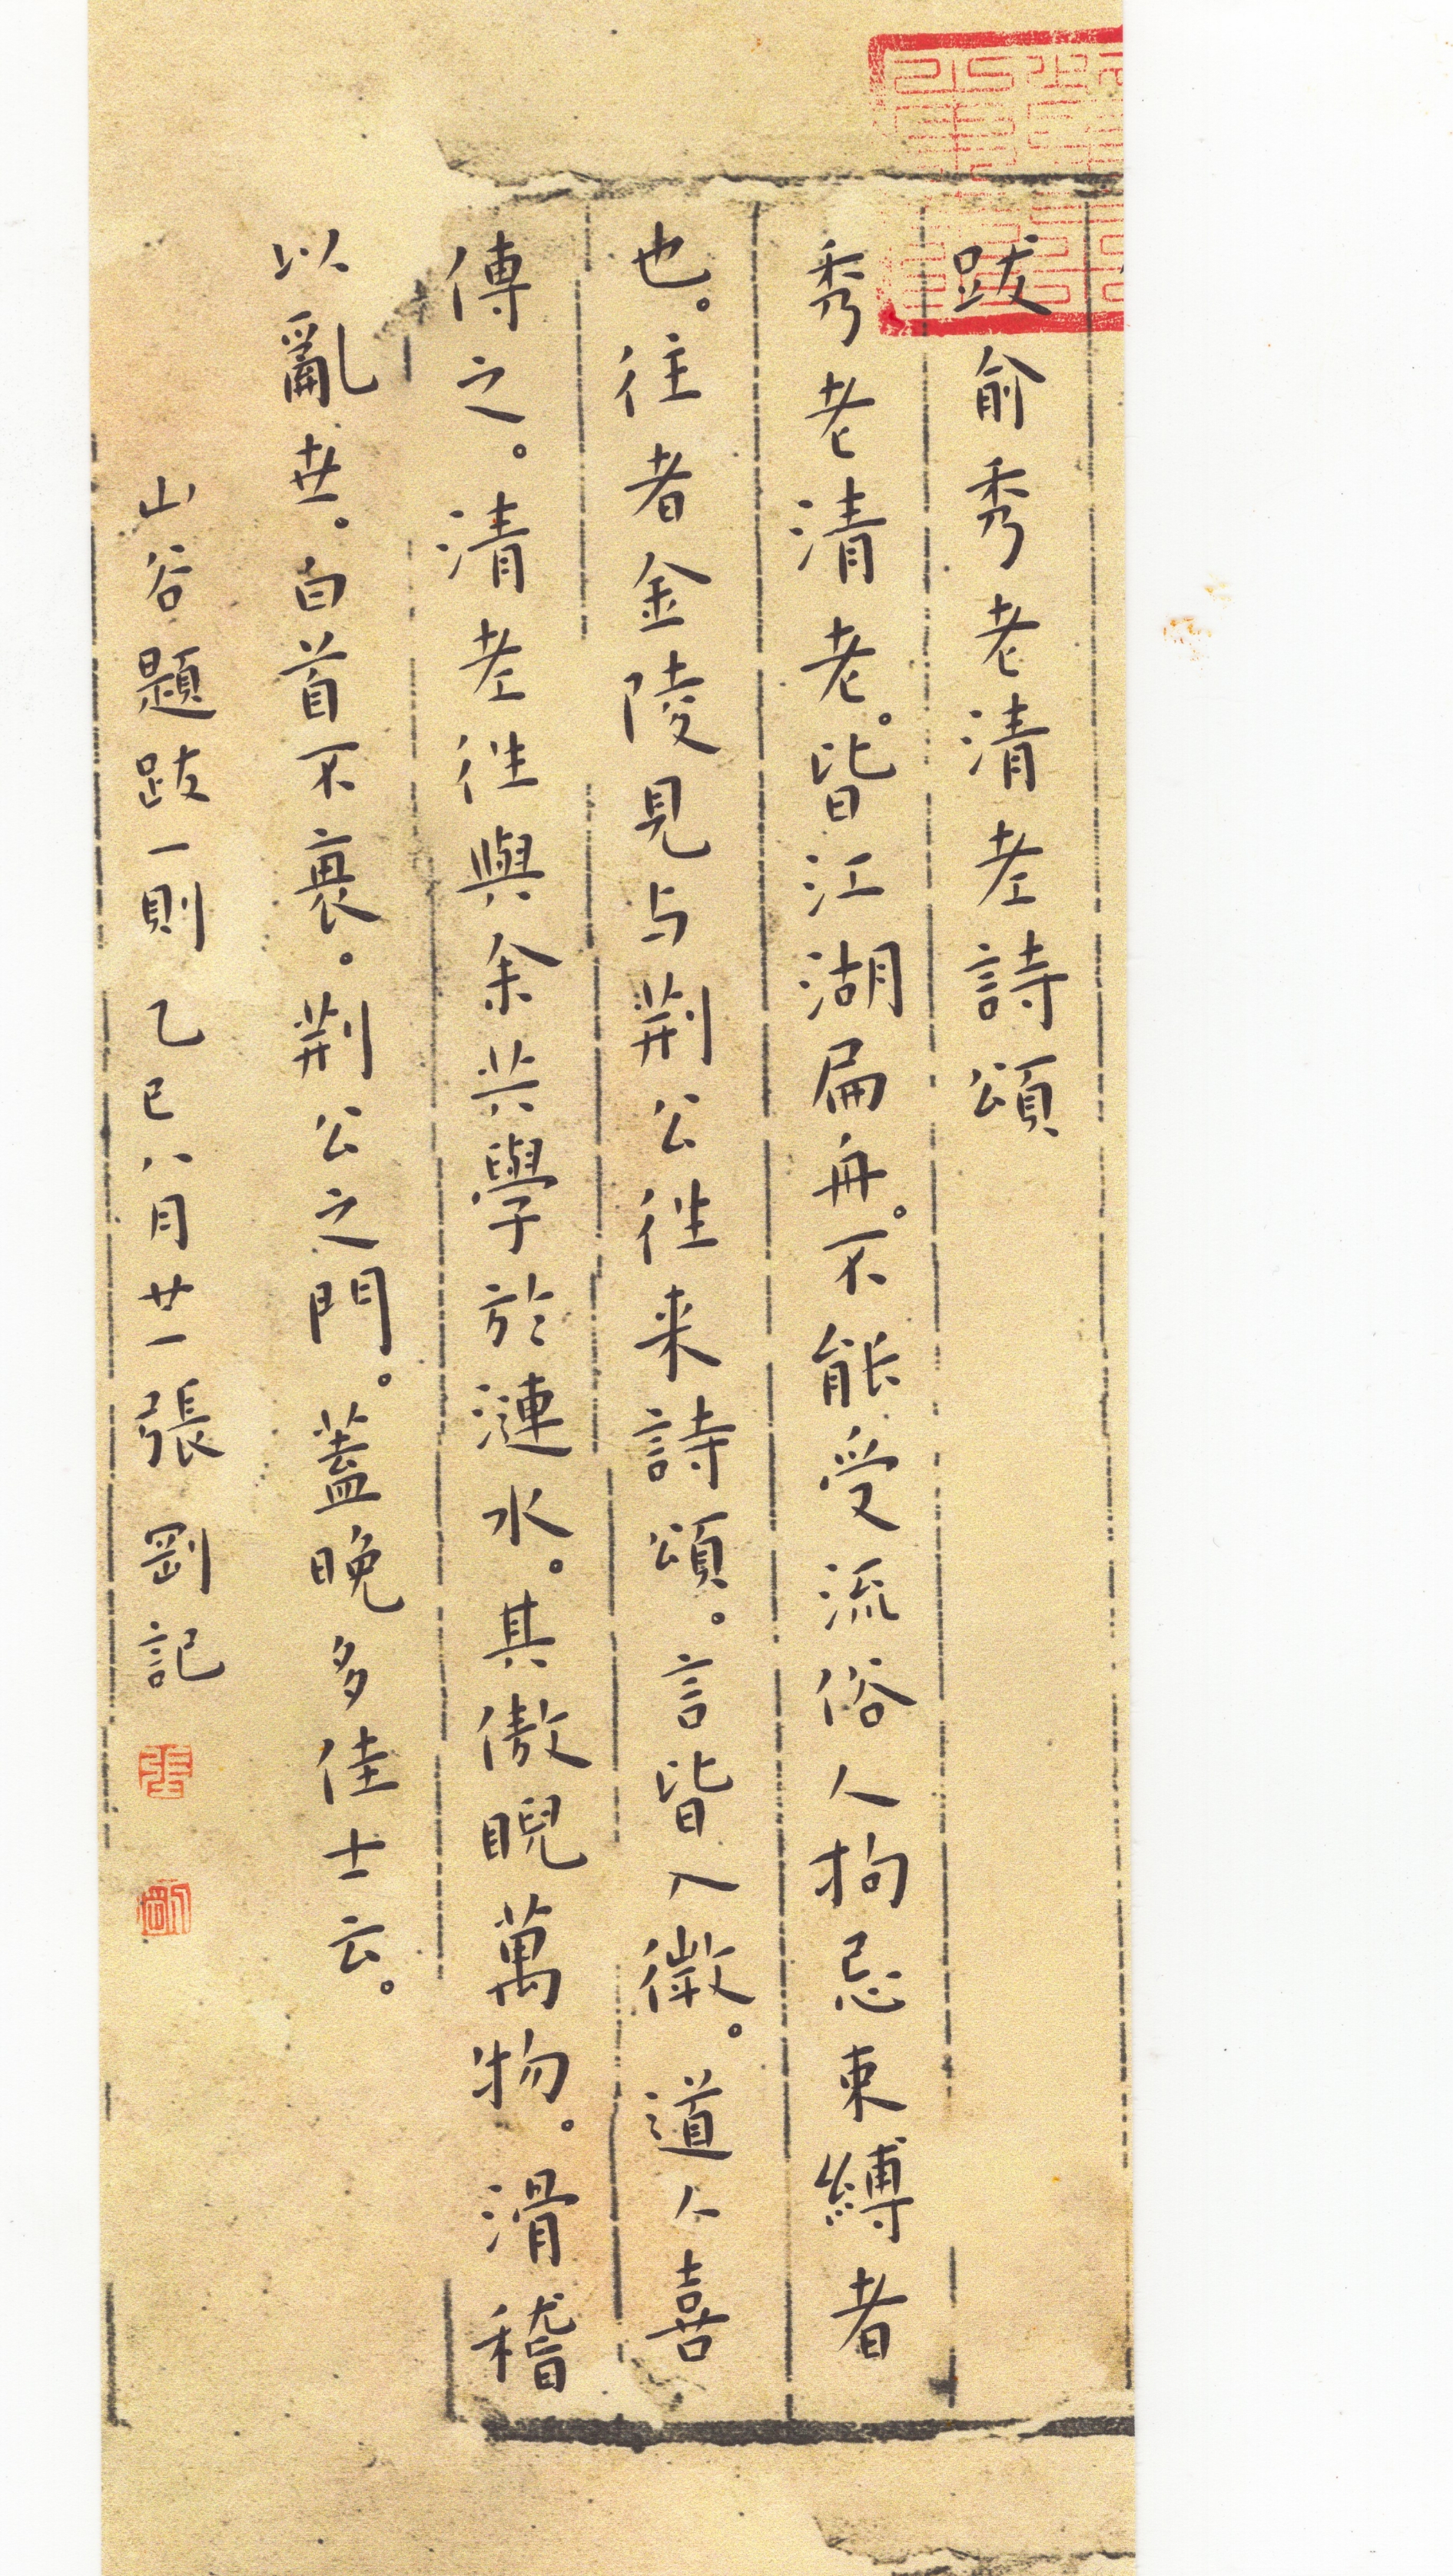 跋俞秀老清老詩頌
秀老清老。皆江湖扁舟。不能受流俗人拘忌束縛者
也。往者金陵見与荆公往来詩頌。言皆入微。道人喜
傳之。清老往與余共學於漣水。其傲睨萬物。滑稽
以亂世。白首不衰。荆公之門。蓋晚多佳士云。
山谷題跋一則 乙巳八月廿一張剛記